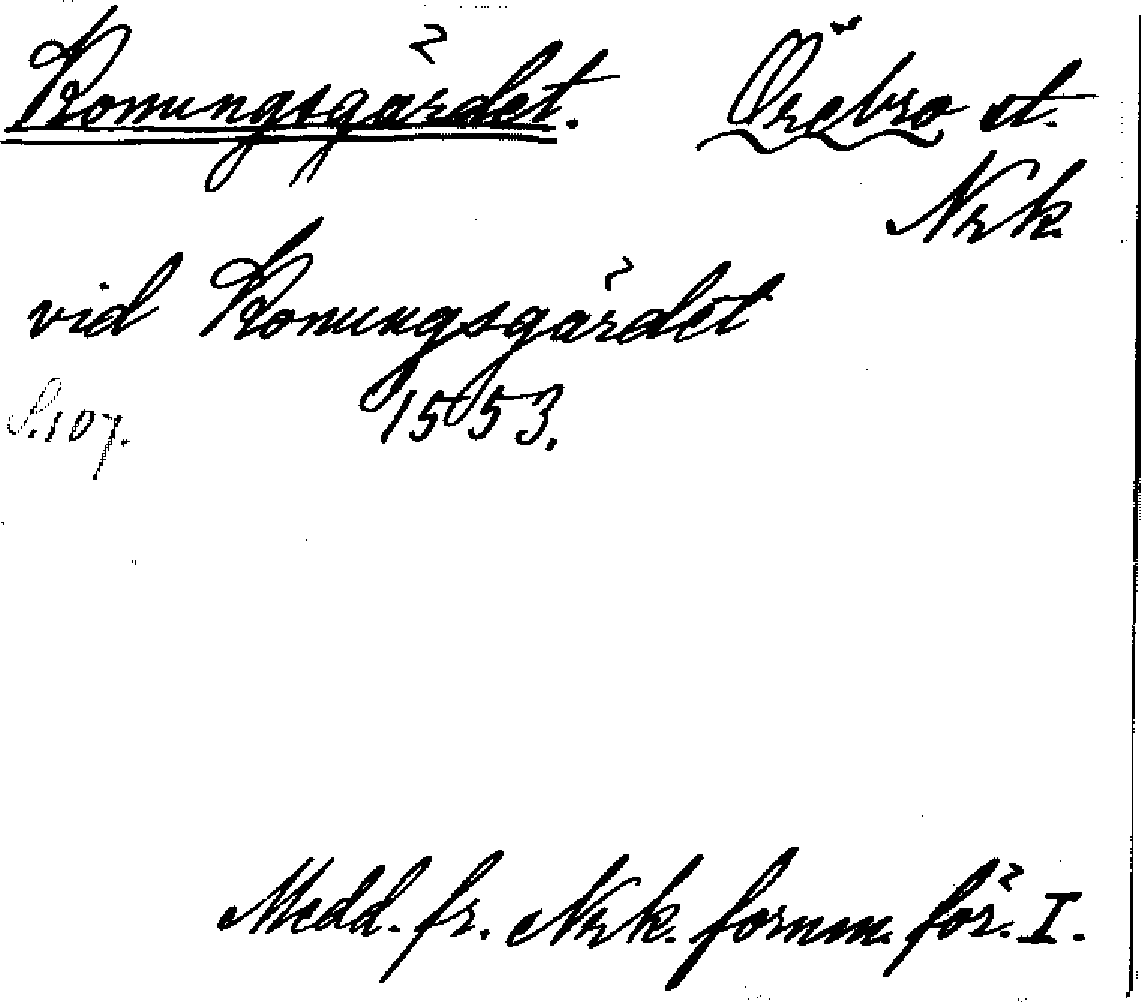 Konungsgärdet. Örebro st.
Nrk.
vid Konungsgärdet
S. 107. 1553.
Medd. fr. Nrk. fornm. för. I.